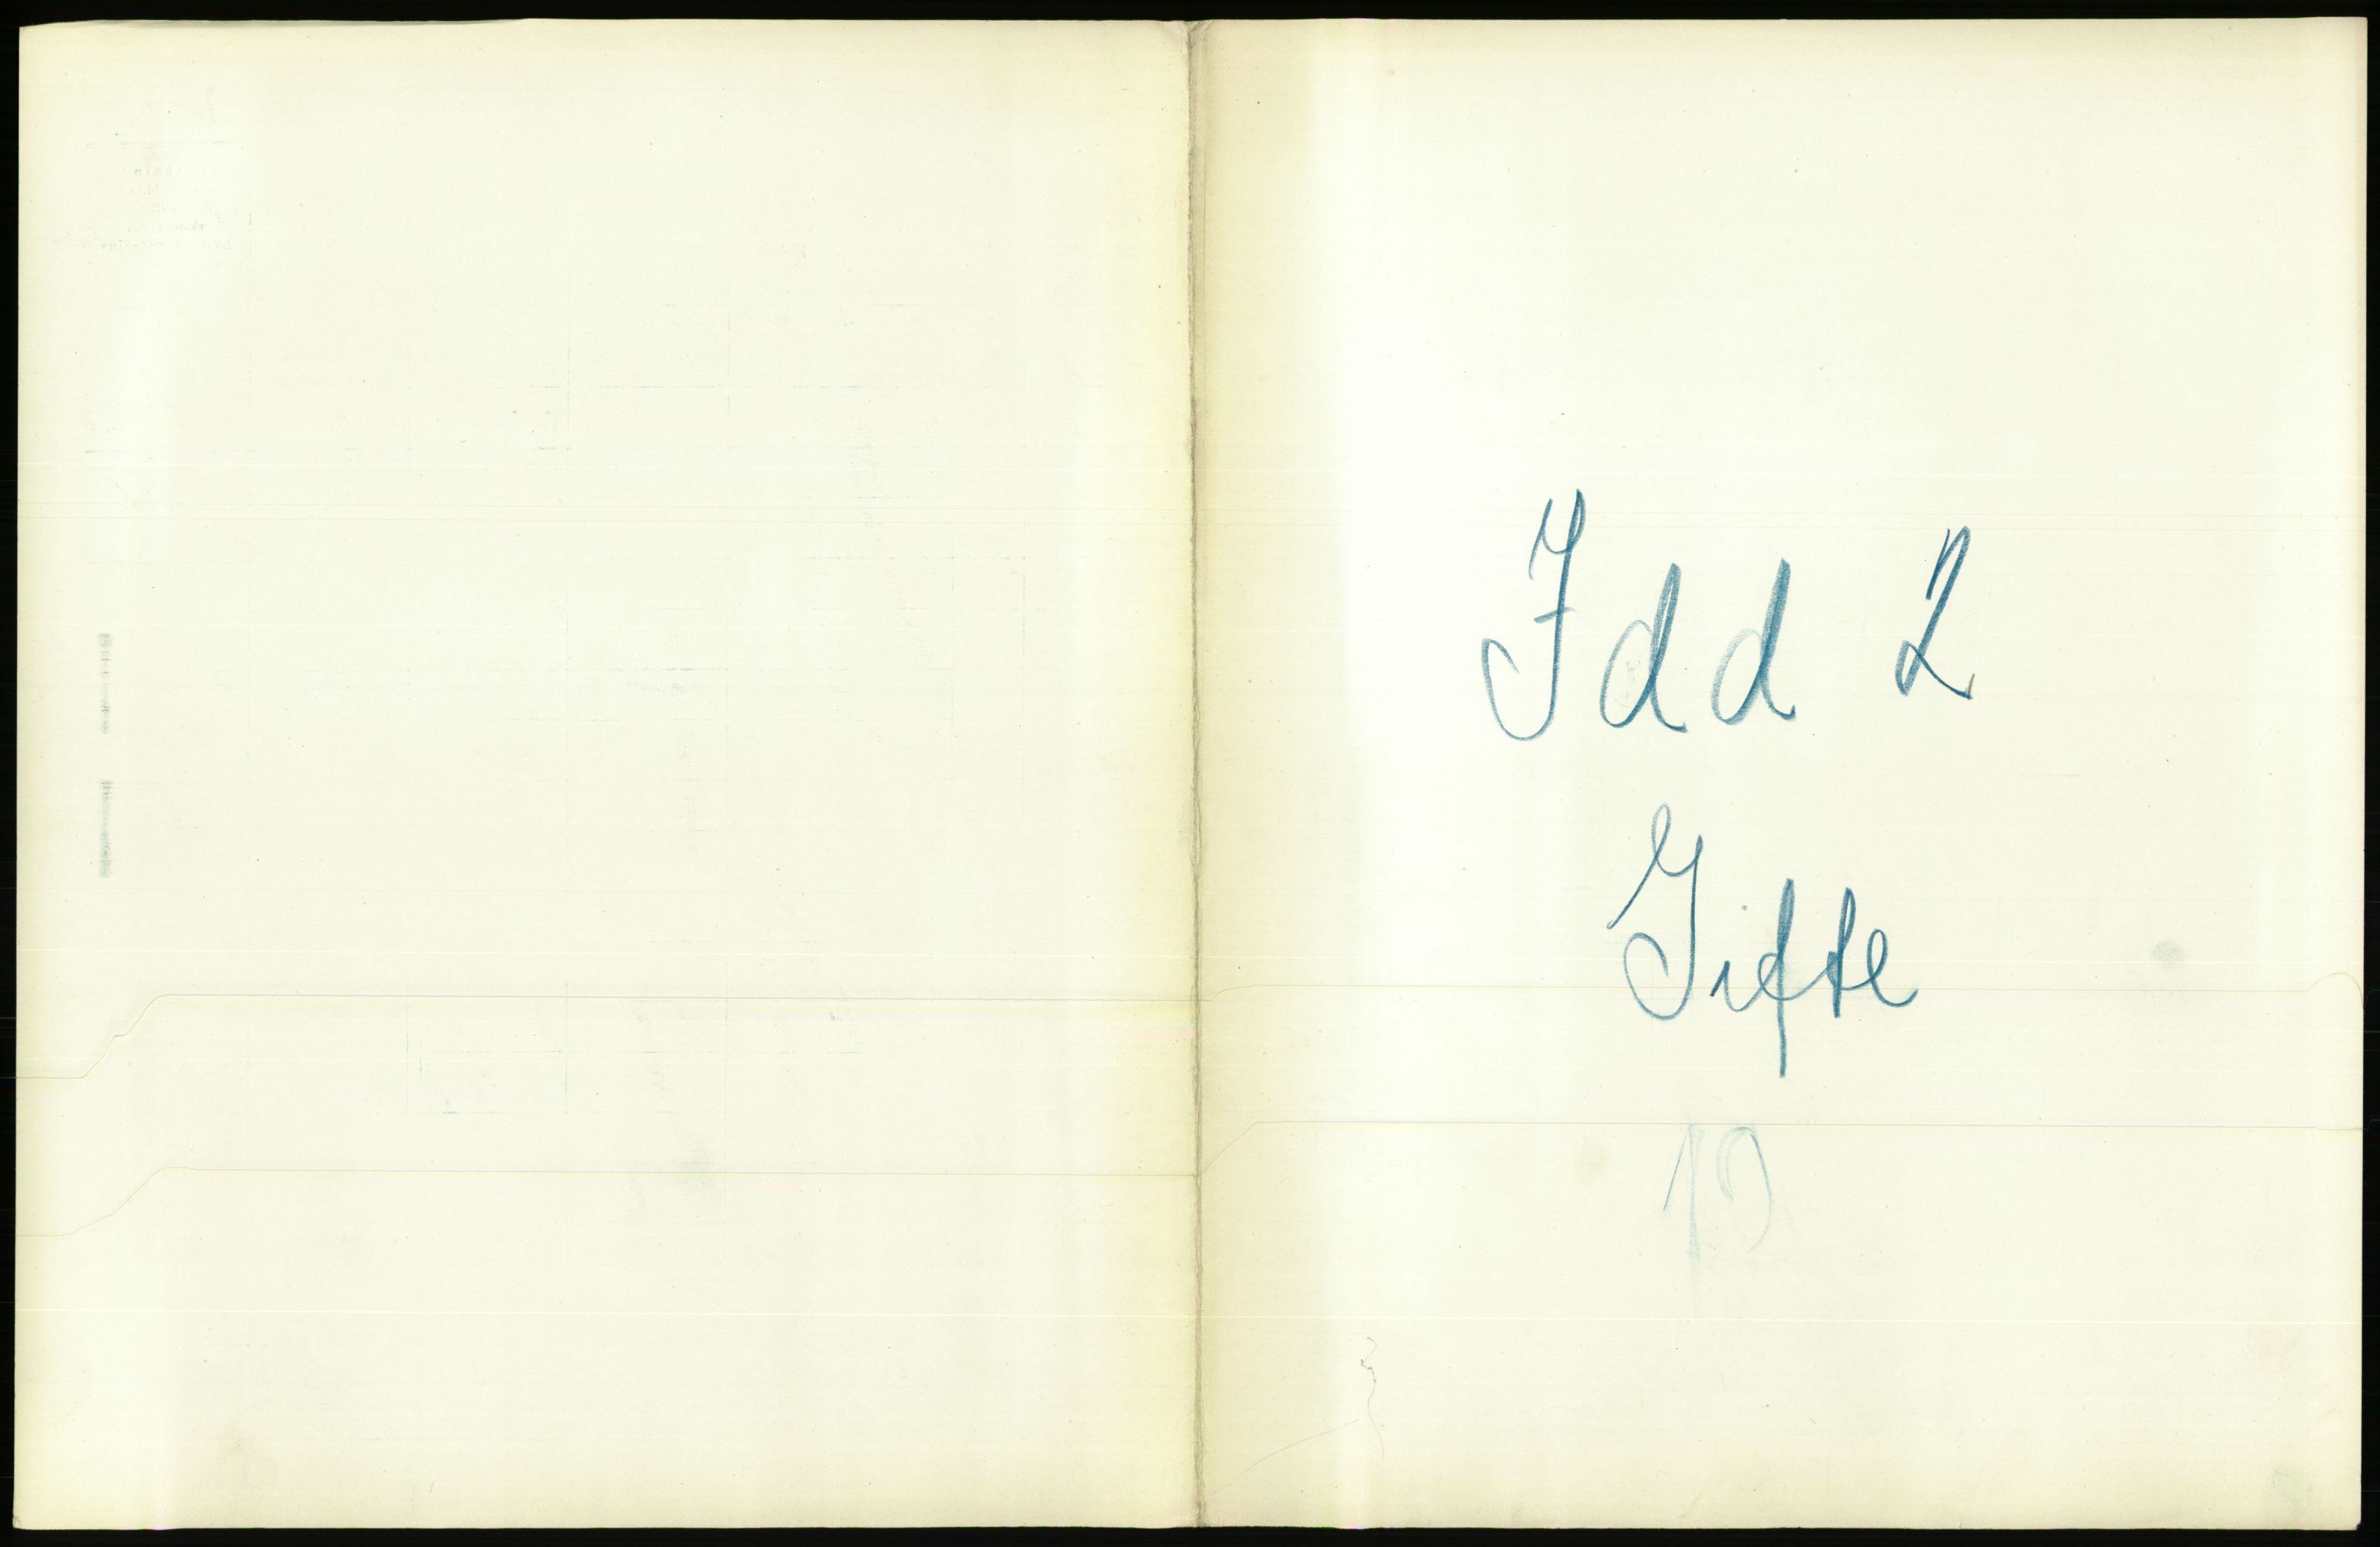 Idd 2
Gifte
19